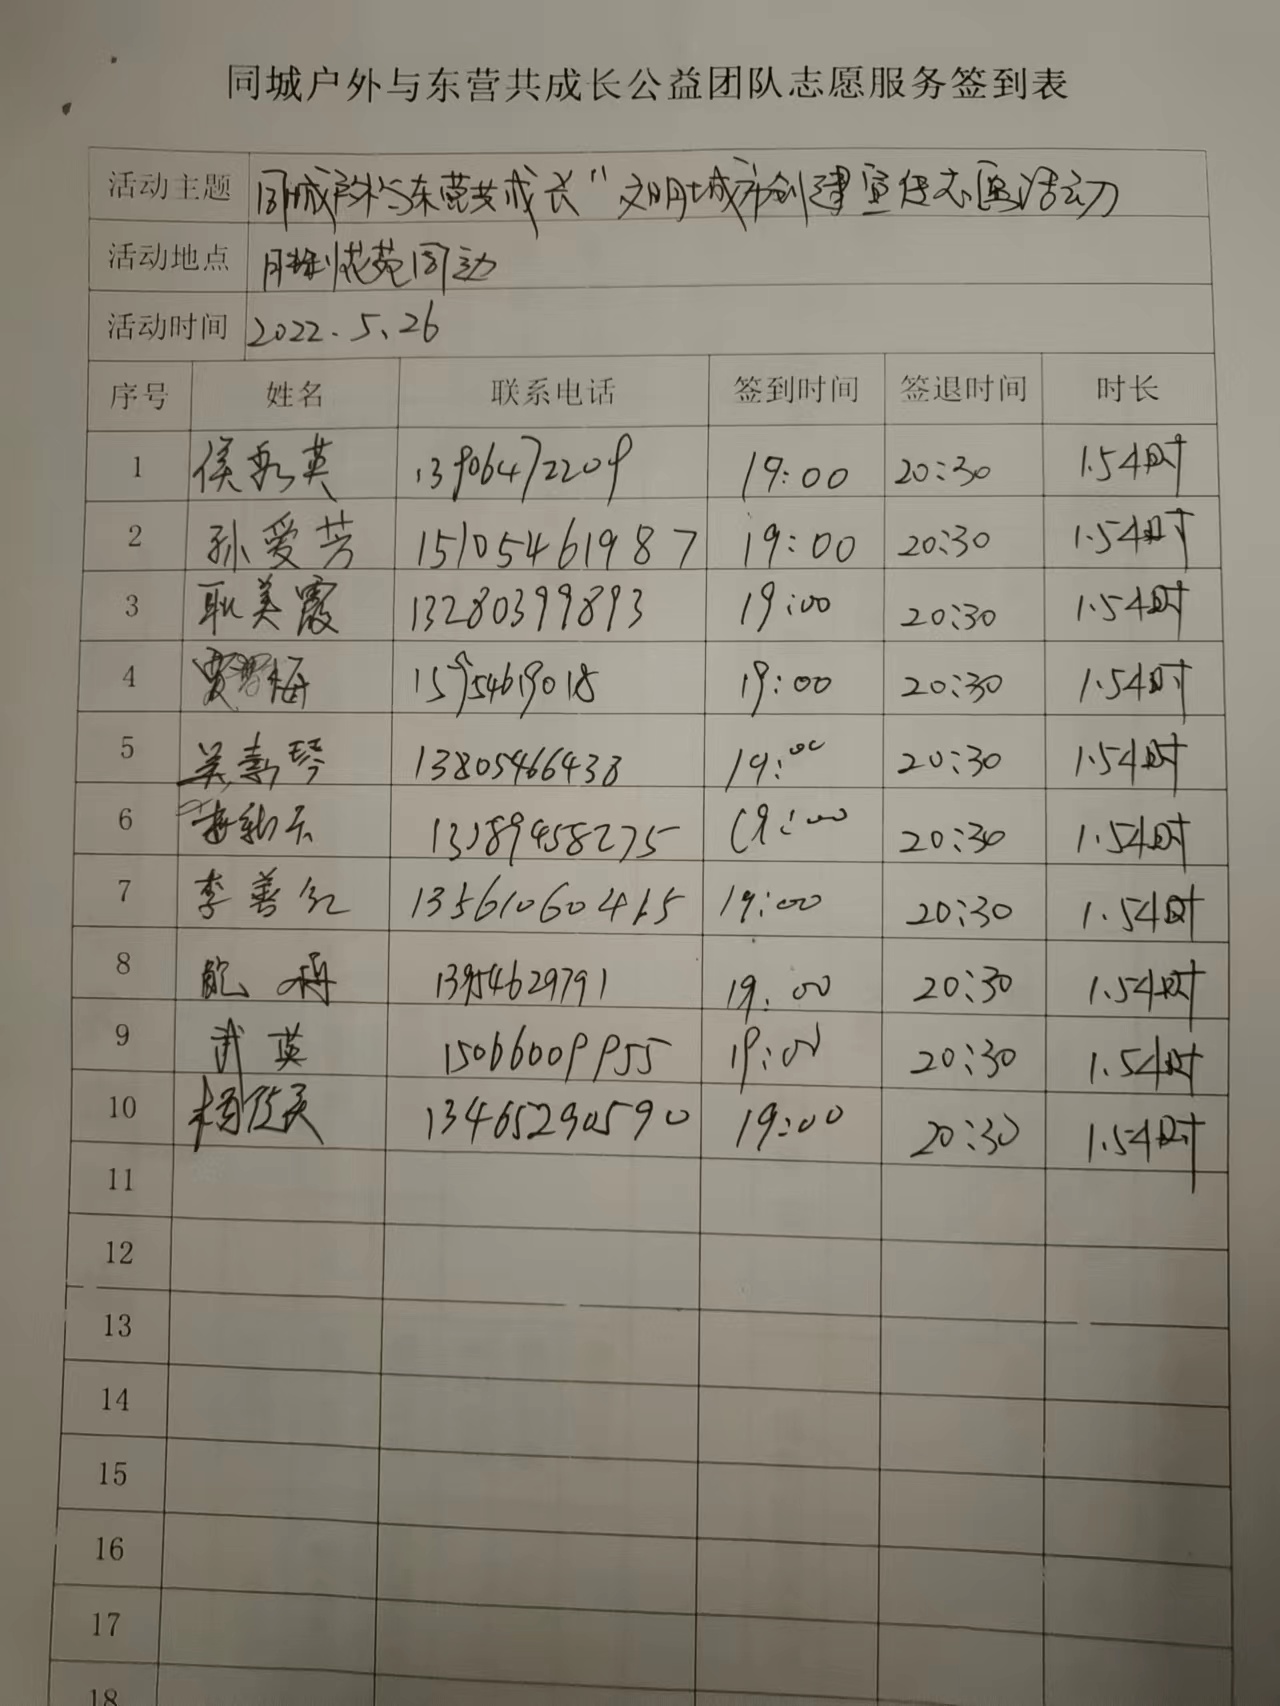 同城户外与东营共成长公益团队志愿服务签到表
活动主题 同城户外与东营共成长"文明城市创建宣传志愿活动
活动地点 胜利花苑周边
活动时间 2022.5.26
序号 姓名 联系电话 签到时间 签退时间 时长
1 侯秀英 13906472209 19:00 20:30 1.5小时
2 孙爱芳 15105461987 19:00 20:30 1.5小时
3 耿美霞 13280399893 19:00 20:30 1.5小时
4 贾 梅 15954619018 19:00 20:30 1.5小时
5 吴素琴 13805466438 19:00 20:30 1.5小时
6 19:00 20:30 1.5小时
7 李善红 13561060465 19:00 20:30 1.5小时
8 13954629791 19:00 20:30 1.5小时
9 武英 15066009955 19:00 20:30 1.5小时
10 13465290590 19:00 20:30 1.5小时
11
12
13
14
15
16
17
18